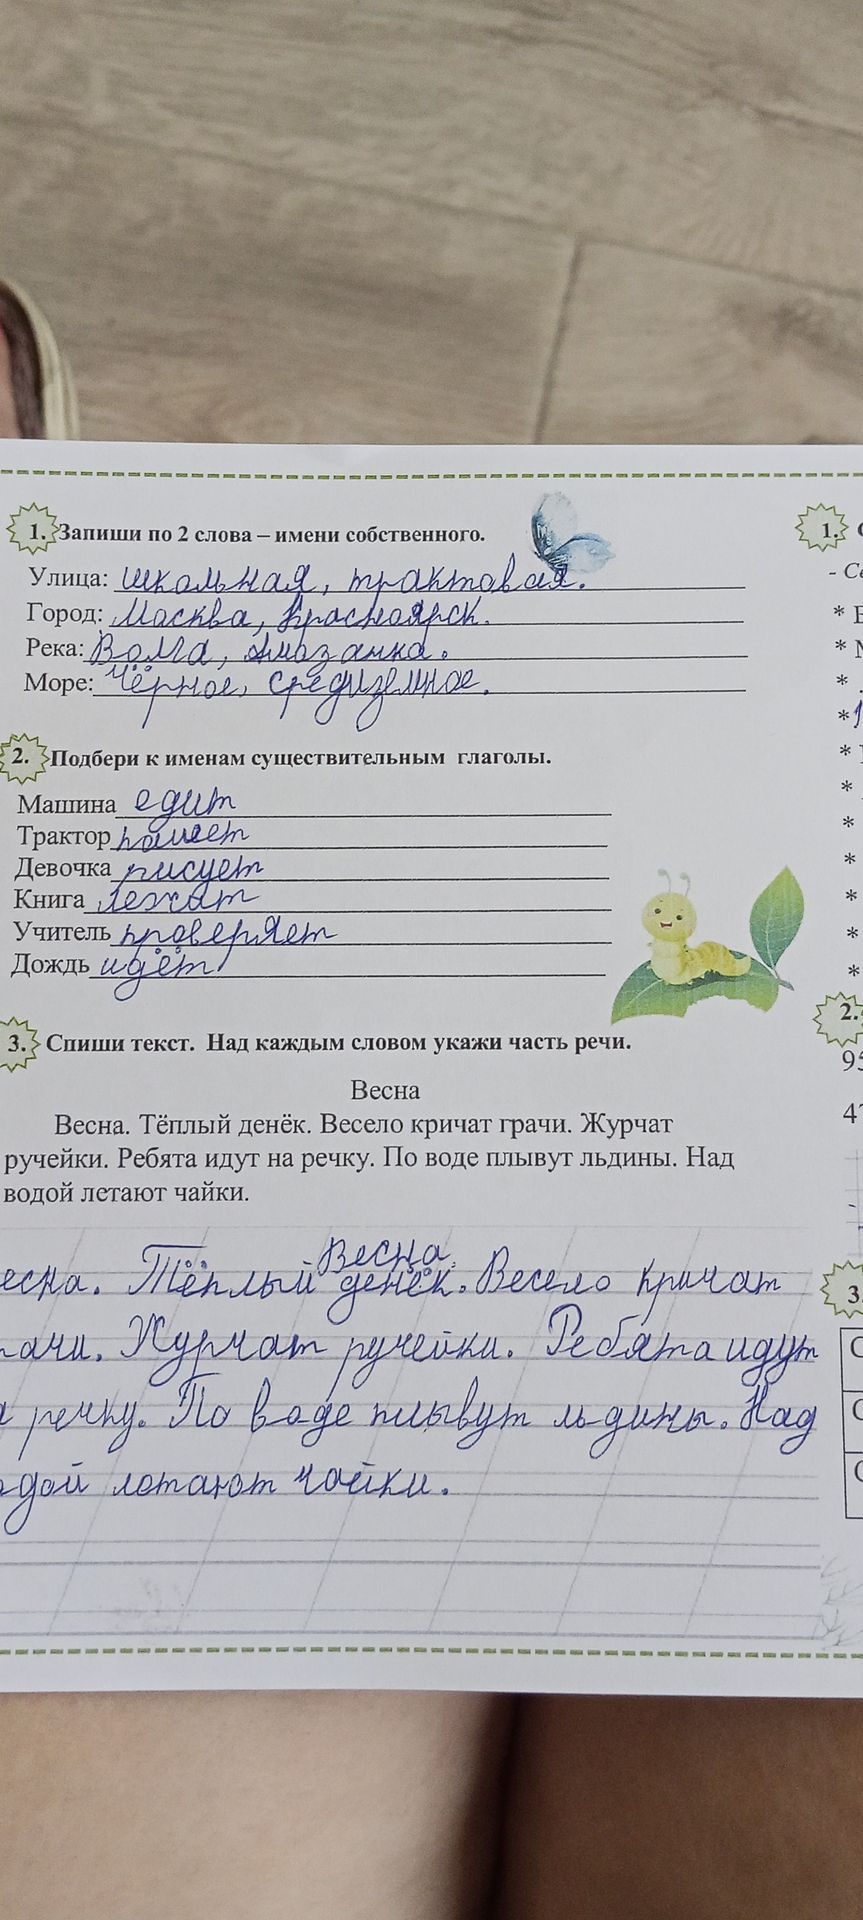 1. Запиши по 2 слова – имени собственного.
Улица: школьная, трактовая.
Город: Москва, Красноярск.
Река: Волга, Амазанка.
Море: Чёрное, средиземное.
2. Подбери к именам существительным глаголы.
Машина едит
Трактор пашет
Девочка рисует
Книга лежат
Учитель проверяет
Дождь идёт
3. Спиши текст. Над каждым словом укажи часть речи.
Весна
Весна. Тёплый денёк. Весело кричат грачи. Журчат
ручейки. Ребята идут на речку. По воде плывут льдины. Над
водой летают чайки.
Весна
есна. Тёплый денёк. Весело кричат
ачи. Журчат ручейки. Ребята идут
речку. По воде плывут льдины. Над
одой летают чайки.
1.
2.
3.